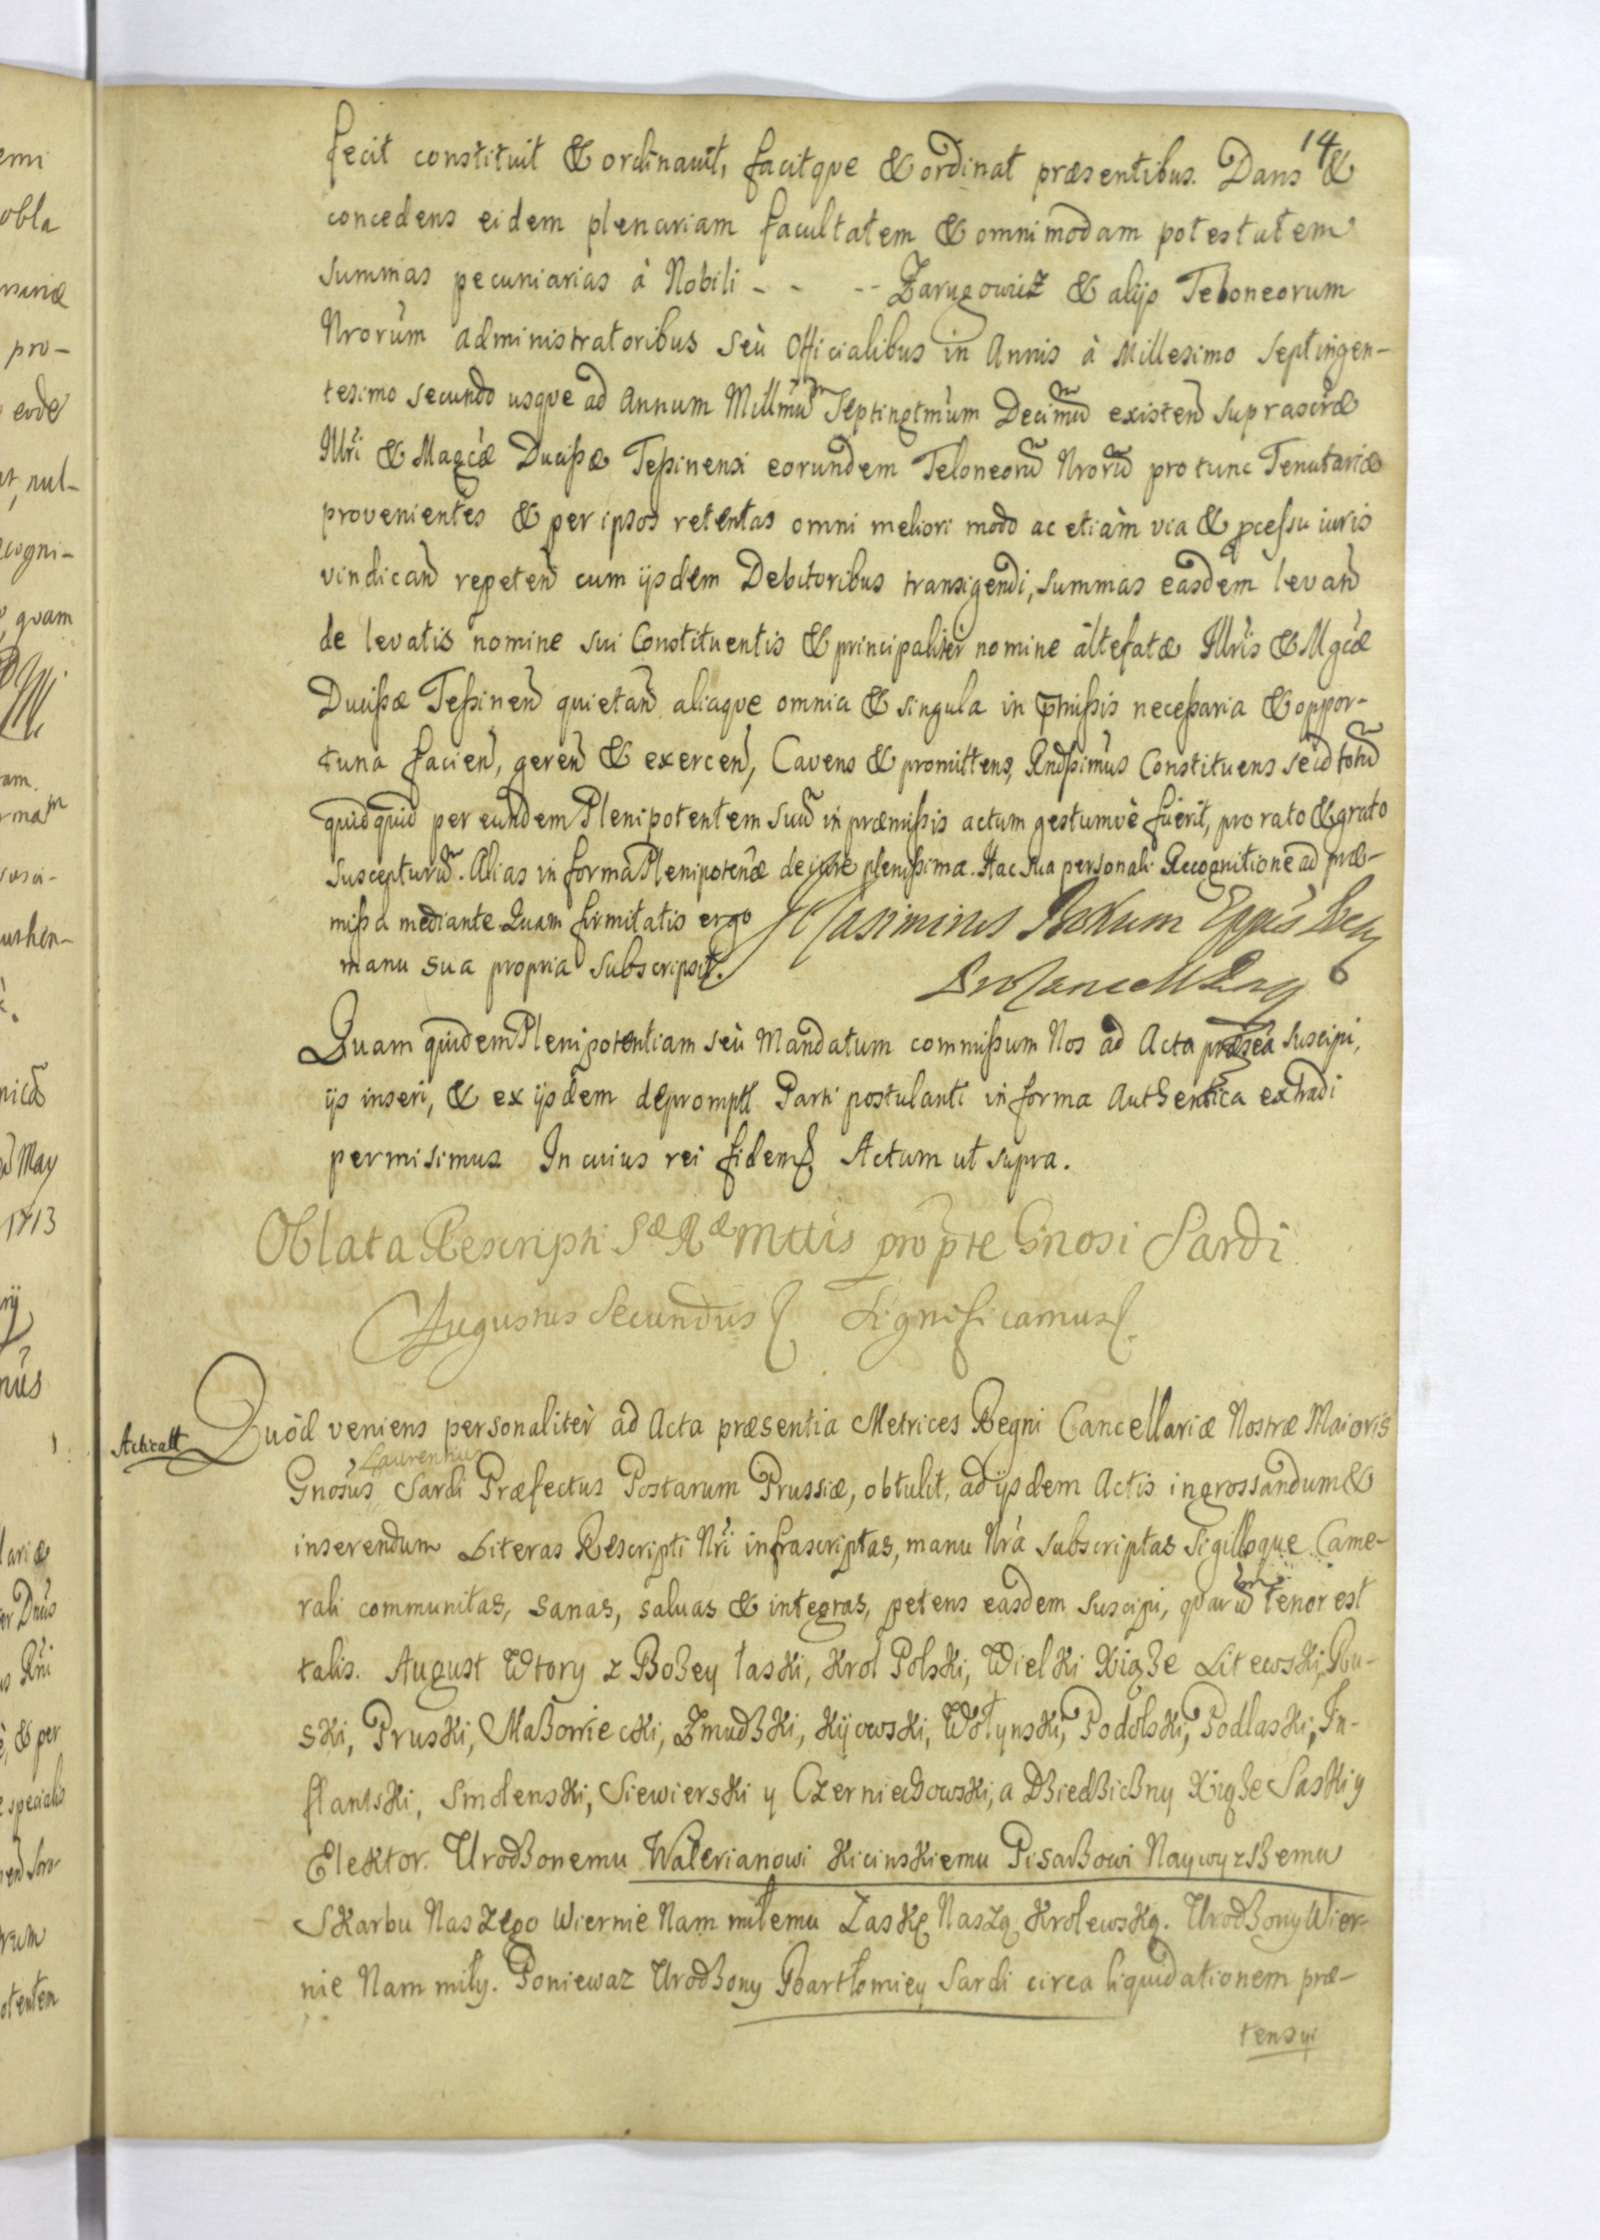 14
fecit constituit & ordinavit, facitque & ordinat præsentibus. Dans &
concedens eidem plenariam facultatem & omnimodam potestatem
summas pecuniarias à Nobili - - -- Zarugowicz & alijs Teloneorum
Nrorum administratoribus seù Officialibus in Annis à Millesimo Septingen-
tesimo secundo usque ad Annum Millmũ Septingtmum Decimũ existen suprascræ
Illri & Magcæ Ducißæ Teßinensi eorundem Teloneorũ Nrorũ pro tunc Tenutariæ
provenientes & per ipsos retentas omni meliori modo ac etiàm via & pceßu iuris
vindican repeten cum ijsdem Debitoribus transigendi, summas easdem levan
de levatis nomine sui Constituentis & principaliter nomine altefatæ Illris & Mgcæ
Ducißæ Teßinen quietan aliaque omnia & singula in pmißis neceßaria & oppor-
tuna facien, geren & exercen, Cavens & promittens, Rndßimus Constituens se id totũ
quidquid per eundem Plenipotentem Suũ in præmißis actum gestumvè fuerit, pro rato & grato
suscepturũ. Alias in forma Plenipotenæ de iure plenißima. Hac sua personali Recognitione ad præ-
mißa mediante. Quam firmitatis ergo
manu sua propria subscripsit.
Quam quidem Plenipotentiam seù Mandatum commißum Nos ad Acta suscipi,
ijs inseri, & ex ijsdem deprompt Parti postulanti in forma Authentica extradi
permisimus In cuius rei fidem Actum ut supra.
Oblata Rescripti Sæ Ræ Mttis pro pte Gnosi Sardi
Augustus Secundus Significamus
Acticatt
Quòd veniens personalitèr ad Acta præsentia Metrices Regni Cancellariæ Nostræ Maioris
Laurentius
Gnosus Sardi Præfectus Postarum Prussiæ, obtulit, ad ijsdem Actis ingrossandum &
inserendum Literas Rescripti Nri infrascriptas, manu Nra subscriptas Sigilloque Came-
rali communitas, sanas, saluas & integras, petens easdem suscipi, quarũ tenor est
talis. August Wtory z Bożey łaski, Krol Polski, Wielki Xiąże Litewski, Ru-
ski, Pruski, Mazowiecki, Zmudzki, Kijowski, Wołynski, Podolski, Podlaski, In-
flantski, Smolenski, Siewierski y Czerniechowski, a Dziedziczny Xiąże Saski y
Elektor. Urodzonemu Walerianowi Kicinskiemu Pisarzowi Naywyzszemu
Skarbu Naszego wiernie Nam miłemu Łaskę Naszą Krolewską. Urodzony Wier-
nie Nam miły. Poniewaz Urodzony Bartłomiey Sardi circa liquidationem præ-
tensyi